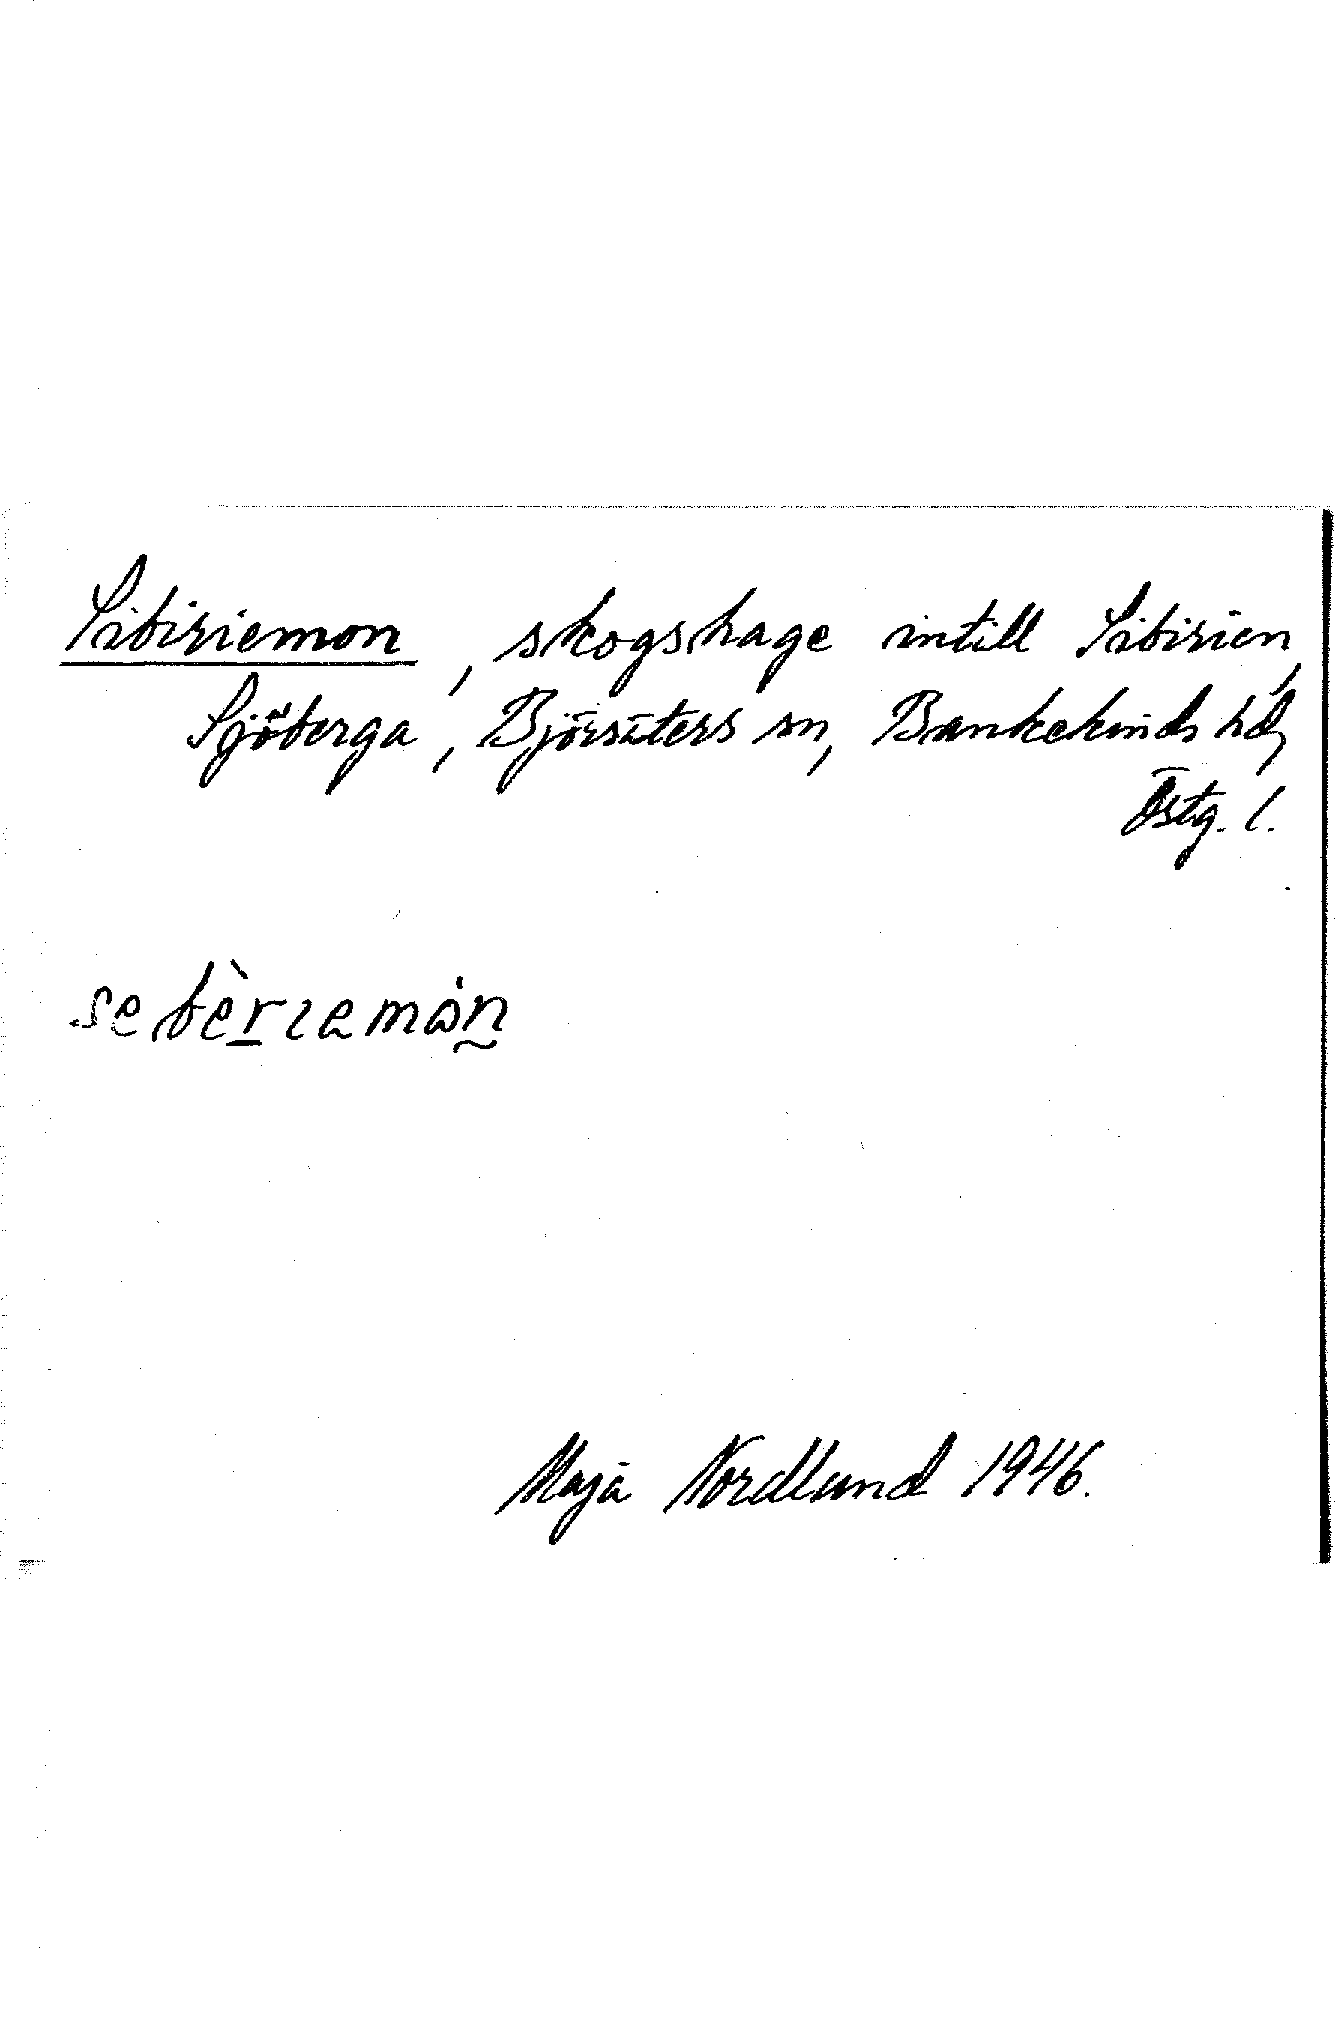 Sibiriemon, skogshage intill Sibirien,
Sjöberga, Björsäters sn, Bankekinds hd,
Östg. l.
sebèriemȯn
Maja Nordlund 1946.